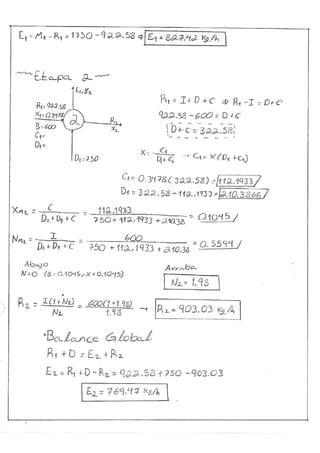 E₁ = M₁ - R₁ = 1750 - 922.58 ⇒ E₁ = 827.42 Kg/h
Etapa 2
E₂, y₂
R₁ = 922.58
X₁ = 0.3478
B = 600
C₁ =
D₁ =
2
R₂
X₂
D₂ = 750
R₁ = I + D + C ⇒ R₁ - I = D + C
922.58 - 600 = D + C
D + C = 322.58
X = C₁ / (D₁ + C₁) → C₁ = X (D₁ + C₁)
C₁ = 0.3478 (322.58) = 112.1933
D₁ = 322.58 - 112.1933 = 210.3866
X_M₂ = C / (D₂ + D₁ + C) = 112.1933 / (750 + 112.1933 + 210.38) = 0.1045
N_M₂ = I / (D₂ + D₁ + C) = 600 / (750 + 112.1933 + 210.38) = 0.5594
Abajo
N = 0 (y = 0.1045, x = 0.1045)
Arriba
N₂ = 1.98
R₂ = I (1 + N₂) / N₂ = 600 (1 + 1.98) / 1.98 → R₂ = 903.03 Kg/h
•Balance Global
R₁ + D = E₂ + R₂
E₂ = R₁ + D - R₂ = 922.58 + 750 - 903.03
E₂ = 769.47 Kg/h